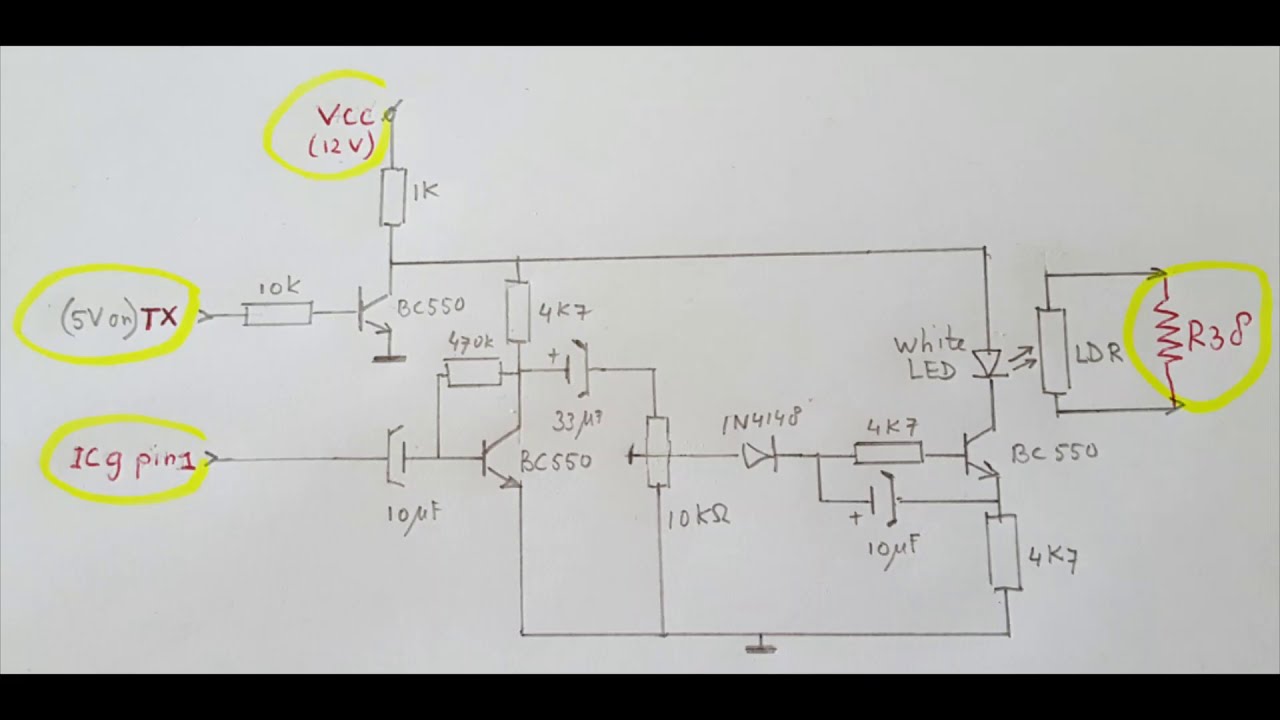 VCC
(12V)
1K
10K
(5V on) TX
BC550
4K7
470K
+
33µF
White
LED
LDR
R38
ICg pin1
10µF
BC550
1N4148
10KΩ
4K7
BC550
+
10µF
4K7